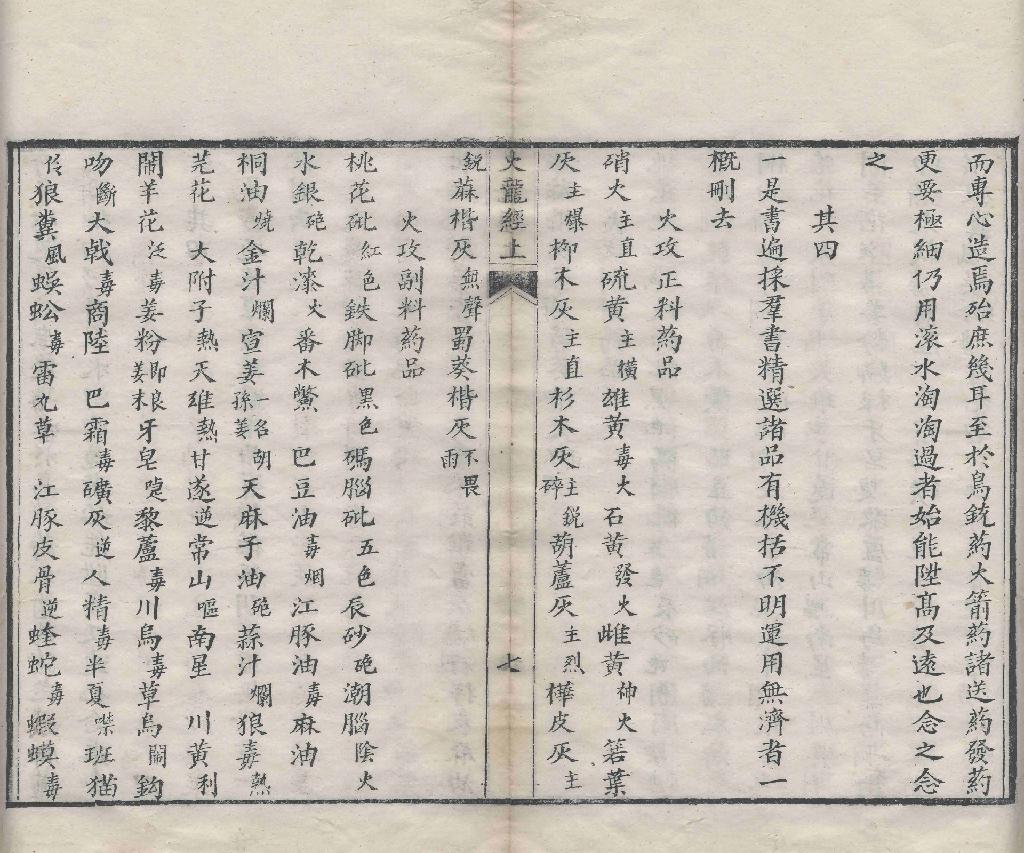 而專心造焉殆庶幾耳至於鳥銃葯火箭葯諸送葯發葯
更要極細仍用滚水淘淘過者始能陞髙及遠也念之念
之
其四
一是書遍採羣書精選諸品有機括不明運用無濟者一
概刪去
火攻正料葯品
硝火主直硫黄主横雄黄毒火石黄發火雌黄神火箬葉
灰主爆柳木灰主直杉木灰主碎銳葫蘆灰主烈樺皮灰主
火龍經上
七
銳蔴楷灰無聲蜀葵楷灰不畏雨
火攻副料葯品
桃花砒紅色鉄脚砒黑色碼腦砒五色辰砂砲潮腦陰火
水銀砲乾漆火番木鱉巴豆油毒烟江豚油毒麻油
桐油燒金汁爛宣姜一名胡孫姜天麻子油砲蒜汁爛狼毒熱
芫花大附子熱天雄熱甘遂逆常山嘔南星川黄利
鬧羊花泛毒姜粉即良姜末牙皂嚏藜蘆毒川烏毒草烏鬧鈎
吻斷大戟毒商陸巴霜毒礦灰逆人精毒半夏噤班猫
狼糞風蜈蚣毒雷丸草江豚皮骨逆蝰蛇毒蝦蟆毒